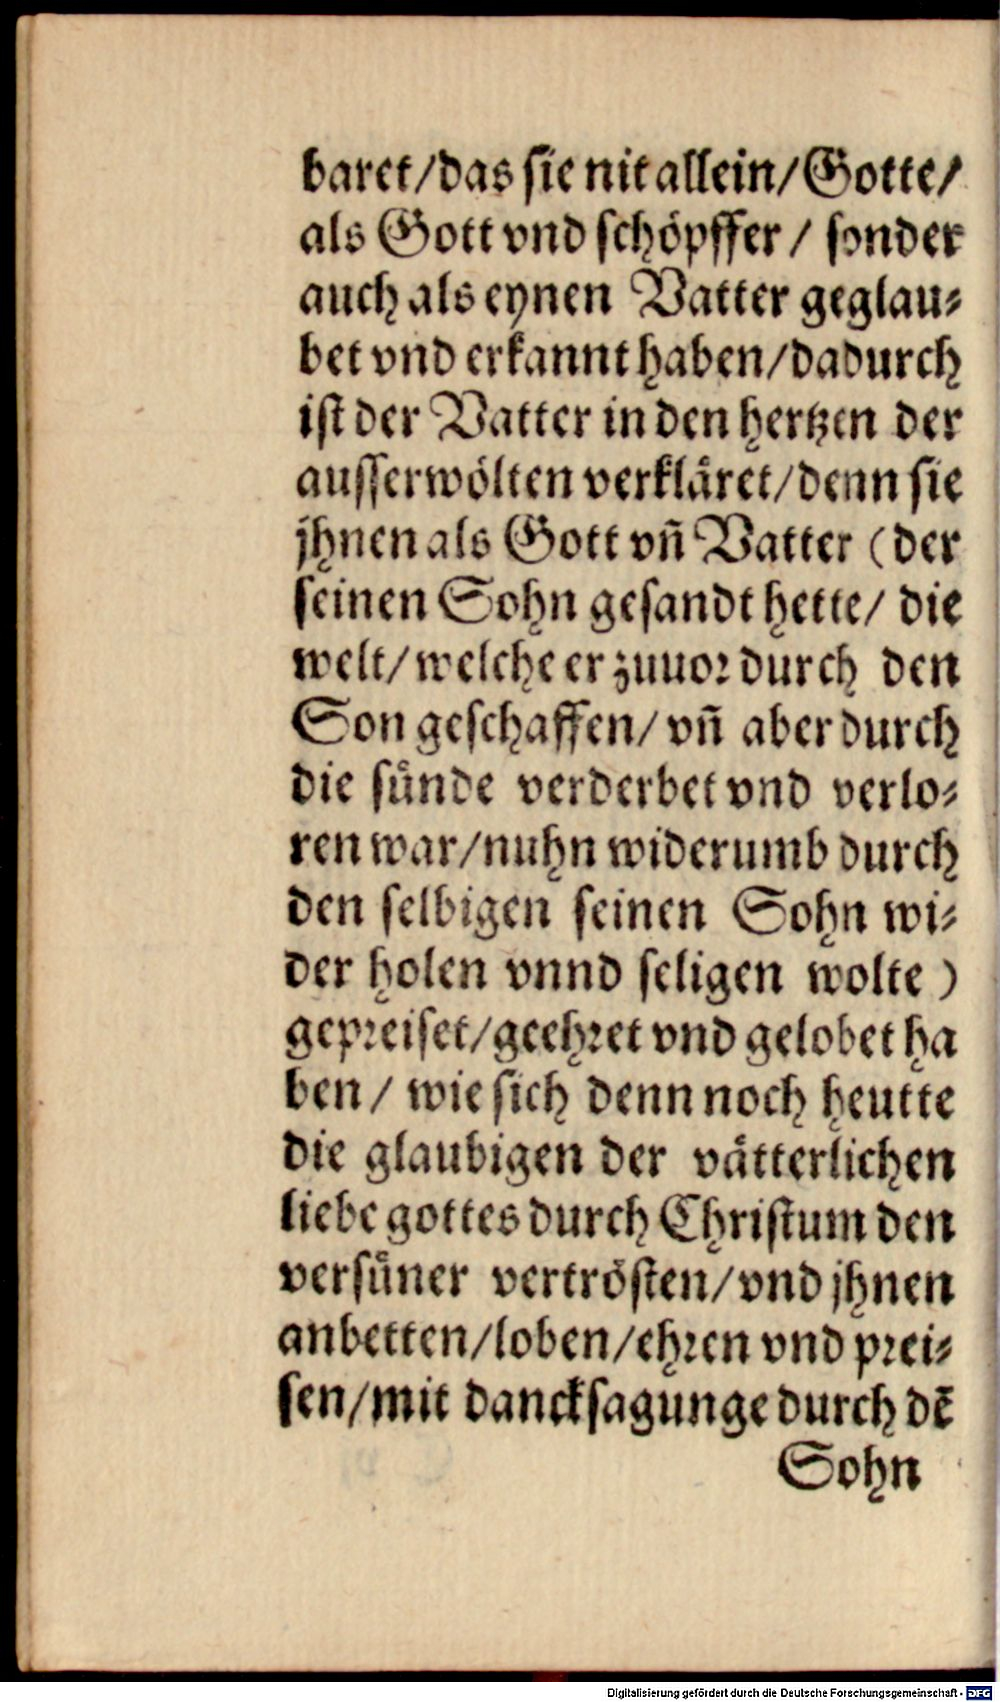 baret/das sie nit allein/Gotte/
als Gott vnd schöpffer / sonder
auch als eynen Vatter geglau⸗
bet vnd erkannt haben/dadurch
ist der Vatter in den hertzen der
ausserwölten verkläret/denn sie
jhnen als Gott vñ Vatter (der
seinen Sohn gesandt hette/ die
welt/welche er zuuor durch den
Son geschaffen/ vñ aber durch
die sünde verderbet vnd verlo⸗
ren war/nuhn widerumb durch
den selbigen seinen Sohn wi⸗
der holen vnnd seligen wolte )
gepreiset/geehret vnd gelobet ha
ben / wie sich denn noch heutte
die glaubigen der vätterlichen
liebe gottes durch Christum den
versüner vertrösten/vnd jhnen
anbetten/loben/ehren vnd prei⸗
sen/mit dancksagunge durch dē
Sohn
Digitalisierung gefördert durch die Deutsche Forschungsgemeinschaft - DFG